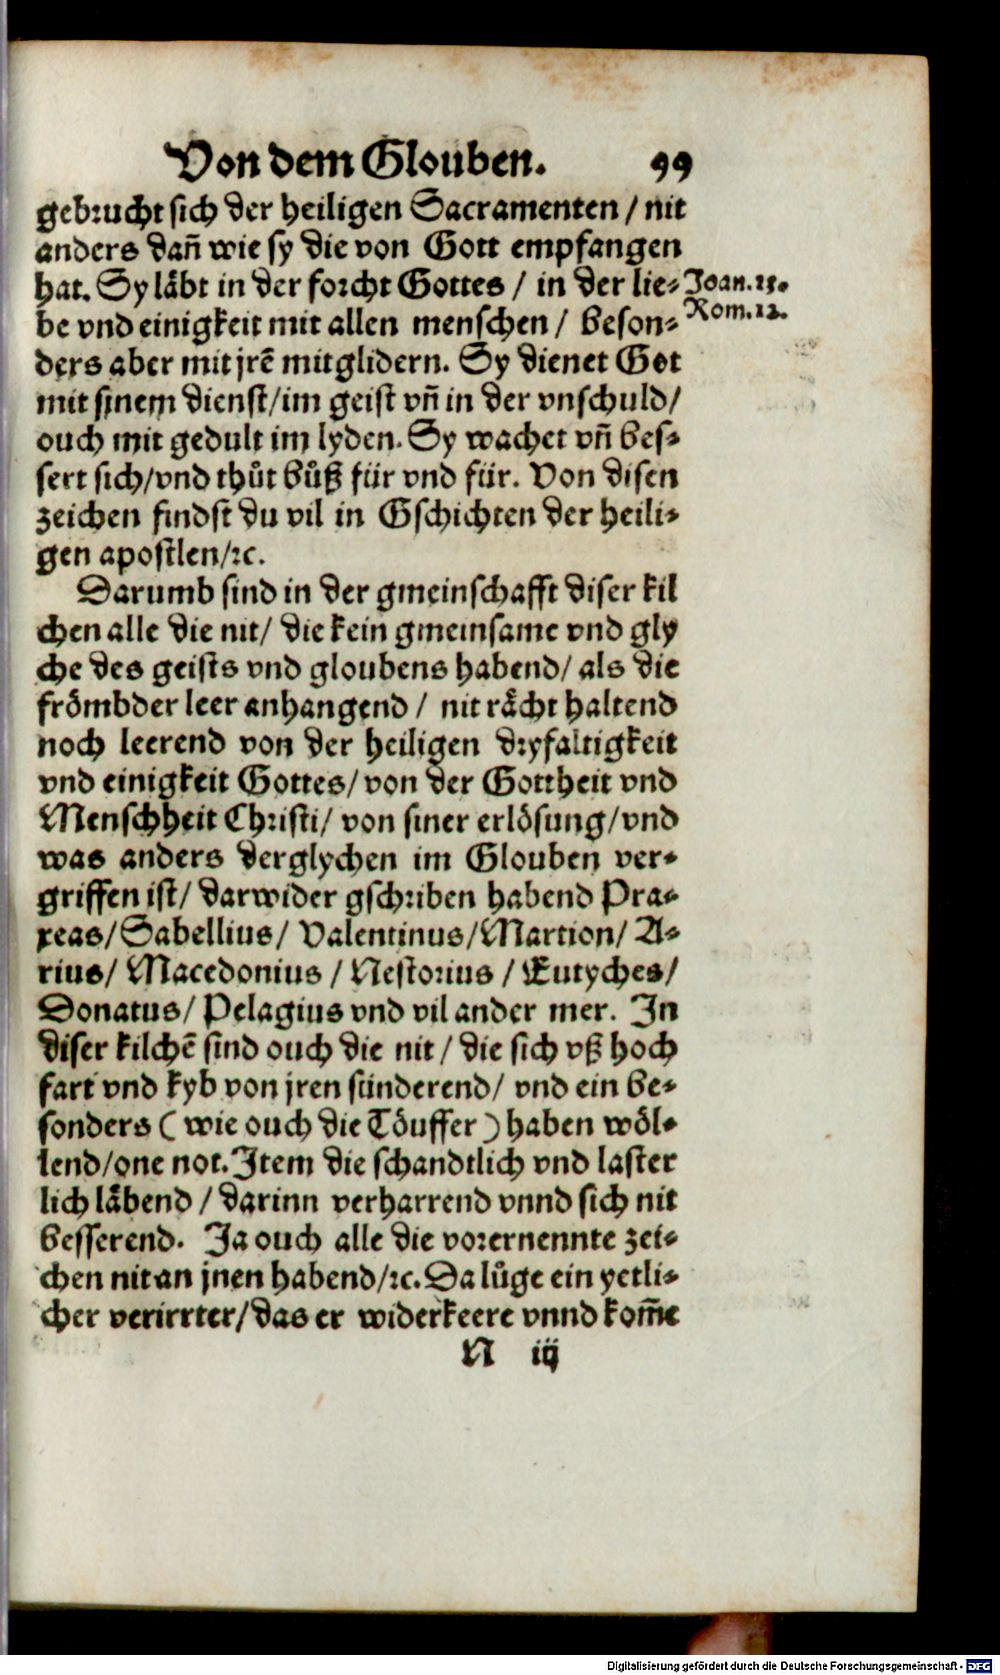 Von dem Glouben. 99
gebrucht sich der heiligen Sacramenten / nit
anders dañ wie sy die von Gott empfangen
hat. Sy läbt in der forcht Gottes / in der lie-
Joan. 15.
be vnd einigkeit mit allen menschen / beson-
Rom. 12.
ders aber mit jrē mitglidern. Sy dienet Got
mit sinem dienst/im geist vñ in der vnschuld/
ouch mit gedult im lyden. Sy wachet vñ bes-
sert sich/vnd thůt bůß für vnd für. Von disen
zeichen findst du vil in Gschichten der heili-
gen apostlen/ꝛc.
Darumb sind in der gmeinschafft diser kil
chen alle die nit/ die kein gmeinsame vnd gly
che des geists vnd gloubens habend/ als die
frömbder leer anhangend / nit rächt haltend
noch leerend von der heiligen dryfaltigkeit
vnd einigkeit Gottes/ von der Gottheit vnd
Menschheit Christi/ von siner erlösung/vnd
was anders derglychen im Glouben ver-
griffen ist/ darwider gschriben habend Pra-
xeas/Sabellius/ Valentinus/Martion/ A-
rius/ Macedonius / Nestorius / Eutyches/
Donatus/ Pelagius vnd vil ander mer. In
diser kilchē sind ouch die nit / die sich vß hoch
fart vnd kyb von jren sünderend/ vnd ein be-
sonders ( wie ouch die Töuffer ) haben wöl-
lend/one not. Item die schandtlich vnd laster
lich läbend / darinn verharrend vnnd sich nit
besserend. Ja ouch alle die vorernennte zei-
chen nit an jnen habend/ꝛc. Da lůge ein yetli-
cher verirrter/das er widerkeere vnnd kom̃e
N iij
Digitalisierung gefördert durch die Deutsche Forschungsgemeinschaft - DFG